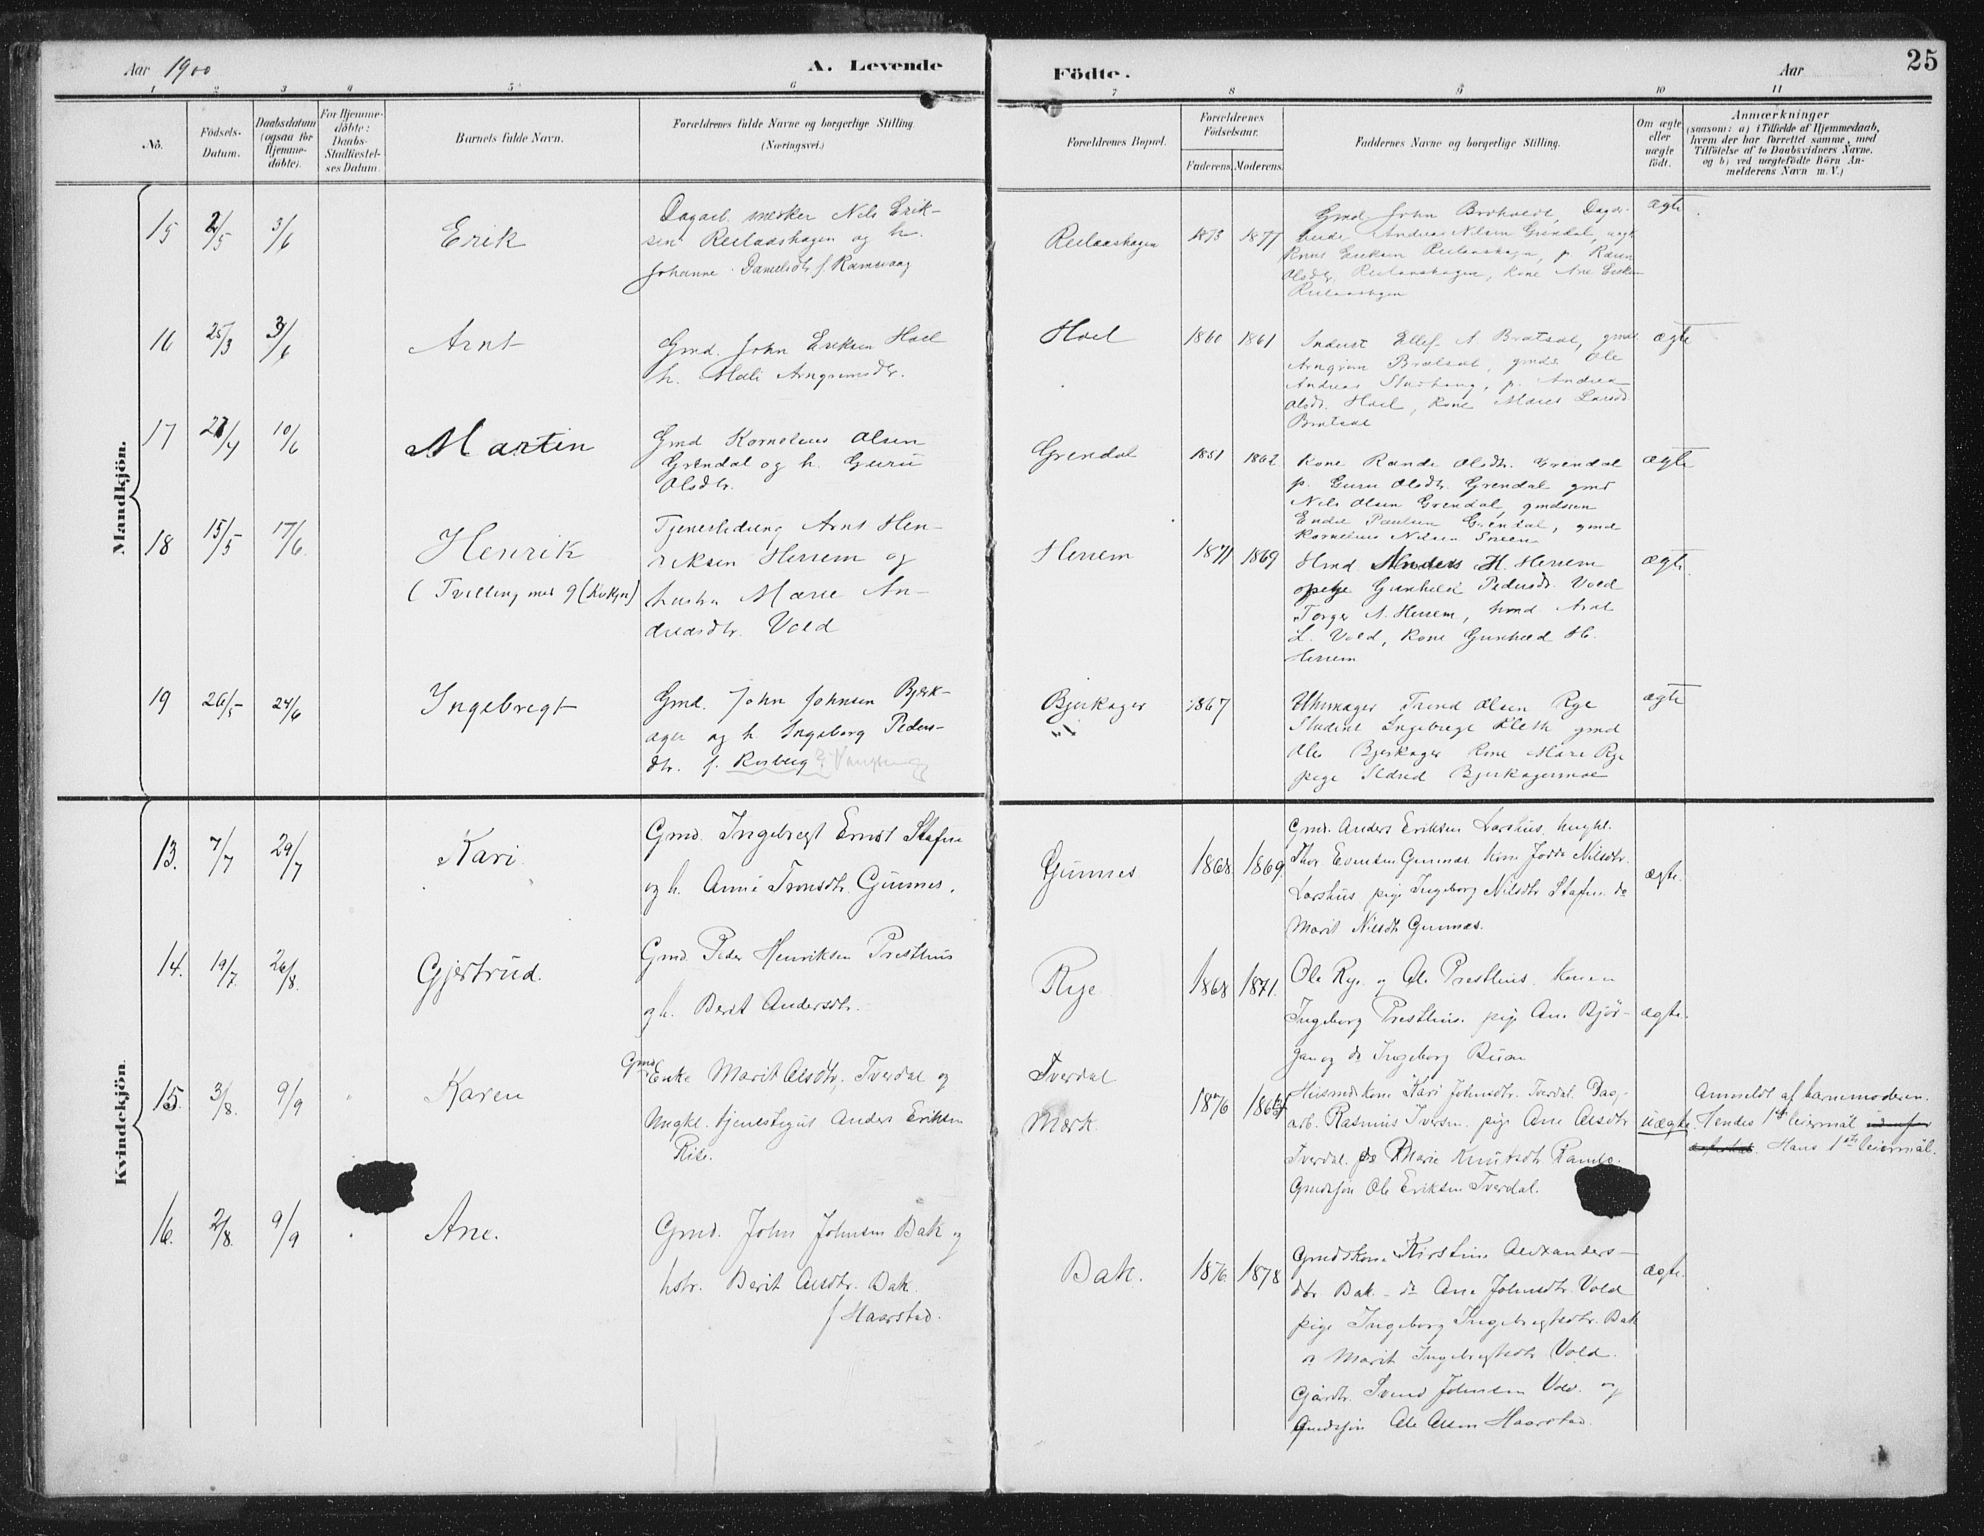 Aar 1900
A. Levende
Födte.
Aar
25
1 2 3 4 5 6 7 8 9 10 11
No.
Födsels-
Datum.
Daabsdatum
(ogsaa for
Hjemme-
döbte).
For Hjemme-
döbte:
Daabs-
Stadfæstel-
ses Datum.
Barnets fulde Navn.
Forældrenes fulde Navne og borgerlige Stilling.
(Næringsvei.)
Forældrenes Bopæl.
Forældrenes
Födselsaar.
Faderens. Moderens.
Faddernes Navne og borgerlige Stilling.
Om ægte
eller
uægte
födt.
Anmærkninger
(saasom: a) i Tilfælde af Hjemmedaab,
hvem der har forrettet samme, med
Tilföielse af to Daabsvidners Navne,
og b) ved uægtefödte Börn An-
melderens Navn m. V.)
Mandkjön.
15 2/5 3/6
Erik
Dagarb. Nils Erik-
sen Reilaashagen og h.
Johanne Danielsdtr f. Ramsvaag
Reilaashagen
1873 1877
Gmd John Dagar-
Andreas Nilsen Grendal, ungk
Knut Eriksen Reilaashagen, p. Karen
Olsdtr. Reilaashagen, kone Ane
Reilaashagen
ægte
16 25/3 3/6
Arnt
Gmd. John Eriksen Hoel
h. Mali Arngrimsdtr.
Hoel
1860 1861
Inderst Ellef A Bratsat, gmds
Arngrim Bratsat, gmds Ole
Andreas Stuhaug, p. Andrea
Olsdr. Hoel, kone Marit Larsd
Bratsat
ægte
17 27/4 10/6
Martin
Gmd Kornelius Olsen
Grendal og h. Guru
Olsdtr.
Grendal
1851 1862
Kone Rande Olsdtr. Grendal
p. Guru Olsdtr. Grendal gmd
Nils Olsen Grendal, gmdssøn
Endre Paulsen Grendal, gmd
Kornelius Nilsen Sneen
ægte
18 15/5 17/6
Henrik
(Tvilling med 9 (Kvkjøn)
Tjenestedreng Arnt Hen-
riksen Herrem og
hustru Marie An-
dreasdtr. Vold
Herrem
1871 1869
Hmd Anders H. Herrem
pige Gunhild Pedersdr. Vold
Torger A. Herrem, hmd Arnt
L. Vold, kone Gunhild H.
Herrem
ægte
19 26/5 24/6
Ingebregt
Gmd. John Johnsen Bjerk-
ager og h Ingeborg Peders-
dtr. f. Rosberg
Bjerkager
1867
Uhrmager Trond Olsen Rye
Student Ingebregt Kleth gmd
Ole Bjerkager kone Mari Rye
pige Sldrid Bjerkagermoe
ægte
Kvindekjön.
13. 7/7 29/7
Kari.
Gmd. Ingebregt Ernst Stafne
og h. Anne Tronsdtr. Gunnes.
Gunnes
1868 1869.
Gmd. Anders Eriksen Larshus. ungkl.
Thor Evensen Gunnes kone Jodde Nilsdtr.
Larshus pige Ingeborg Nilsdtr Stafne. do
Marit Nilsdtr Gunnes.
ægte.
14. 19/7. 26/8.
Gjertrud.
Gmd. Peder Henriksen Presthus
og h. Berit Andersdtr.
Rye
1868 1871.
Ole Rye og Ole Presthus. konen
Ingeborg Presthus. pige Ane Bjør-
gan og do Ingeborg Buan
ægte.
15. 3/8. 9/9
Karen
Gmd Enke Marit Olsdtr. Tverdal og
Ungkl. tjenestegut Anders Eriksen
Rise.
Tverdal
Mærk.
1876
Husmdskone Kari Johnsdtr. Tverdal Dag-
arb. Rasmus Iversen. pige Ane Olsdtr
Tverdal. do Marie Knutsdtr Ramlo.
Gmdssøn Ole Eriksen Tverdal.
uægte.
Anmeldt af barnemoderen.
Hendes 1ste leiermål
Hans 1ste leiermål.
16. 2/8. 9/9
Ane.
Gmd. John Johnsen Bak og
hstr. Berit Olsdtr. Bak.
f Haarstad.
Bak.
1876. 1878
Gmdskone Kirstine Alexanders-
dtr Bak - do Ane Johnsdtr Vold
pige Ingeborg Ingebregtsdtr. Bak
do Marit Ingebregtsdtr Vold.
Gårdbr. Svend Johnsen Vold. og
Gmdssøn Ole Olsen Haarstad.
ægte.